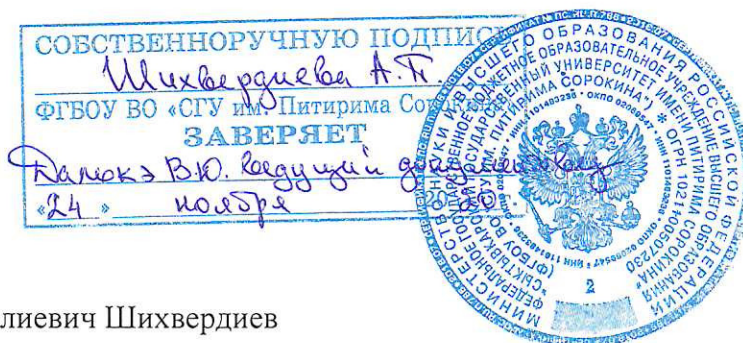 СОБСТВЕННОРУЧНУЮ ПОДПИСЬ
Шихвердиева А.П.
ФГБОУ ВО «СГУ им. Питирима Сорокина»
ЗАВЕРЯЕТ
В.Ю. ведущий
«24» ноября 2020
МИНИСТЕРСТВО НАУКИ И ВЫСШЕГО ОБРАЗОВАНИЯ РОССИЙСКОЙ ФЕДЕРАЦИИ
ФЕДЕРАЛЬНОЕ ГОСУДАРСТВЕННОЕ БЮДЖЕТНОЕ ОБРАЗОВАТЕЛЬНОЕ УЧРЕЖДЕНИЕ ВЫСШЕГО ОБРАЗОВАНИЯ
"СЫКТЫВКАРСКИЙ ГОСУДАРСТВЕННЫЙ УНИВЕРСИТЕТ ИМЕНИ ПИТИРИМА СОРОКИНА"
(ФГБОУ ВО "СГУ ИМ. ПИТИРИМА СОРОКИНА") * ОГРН 1021100507230
2
лиевич Шихвердиев